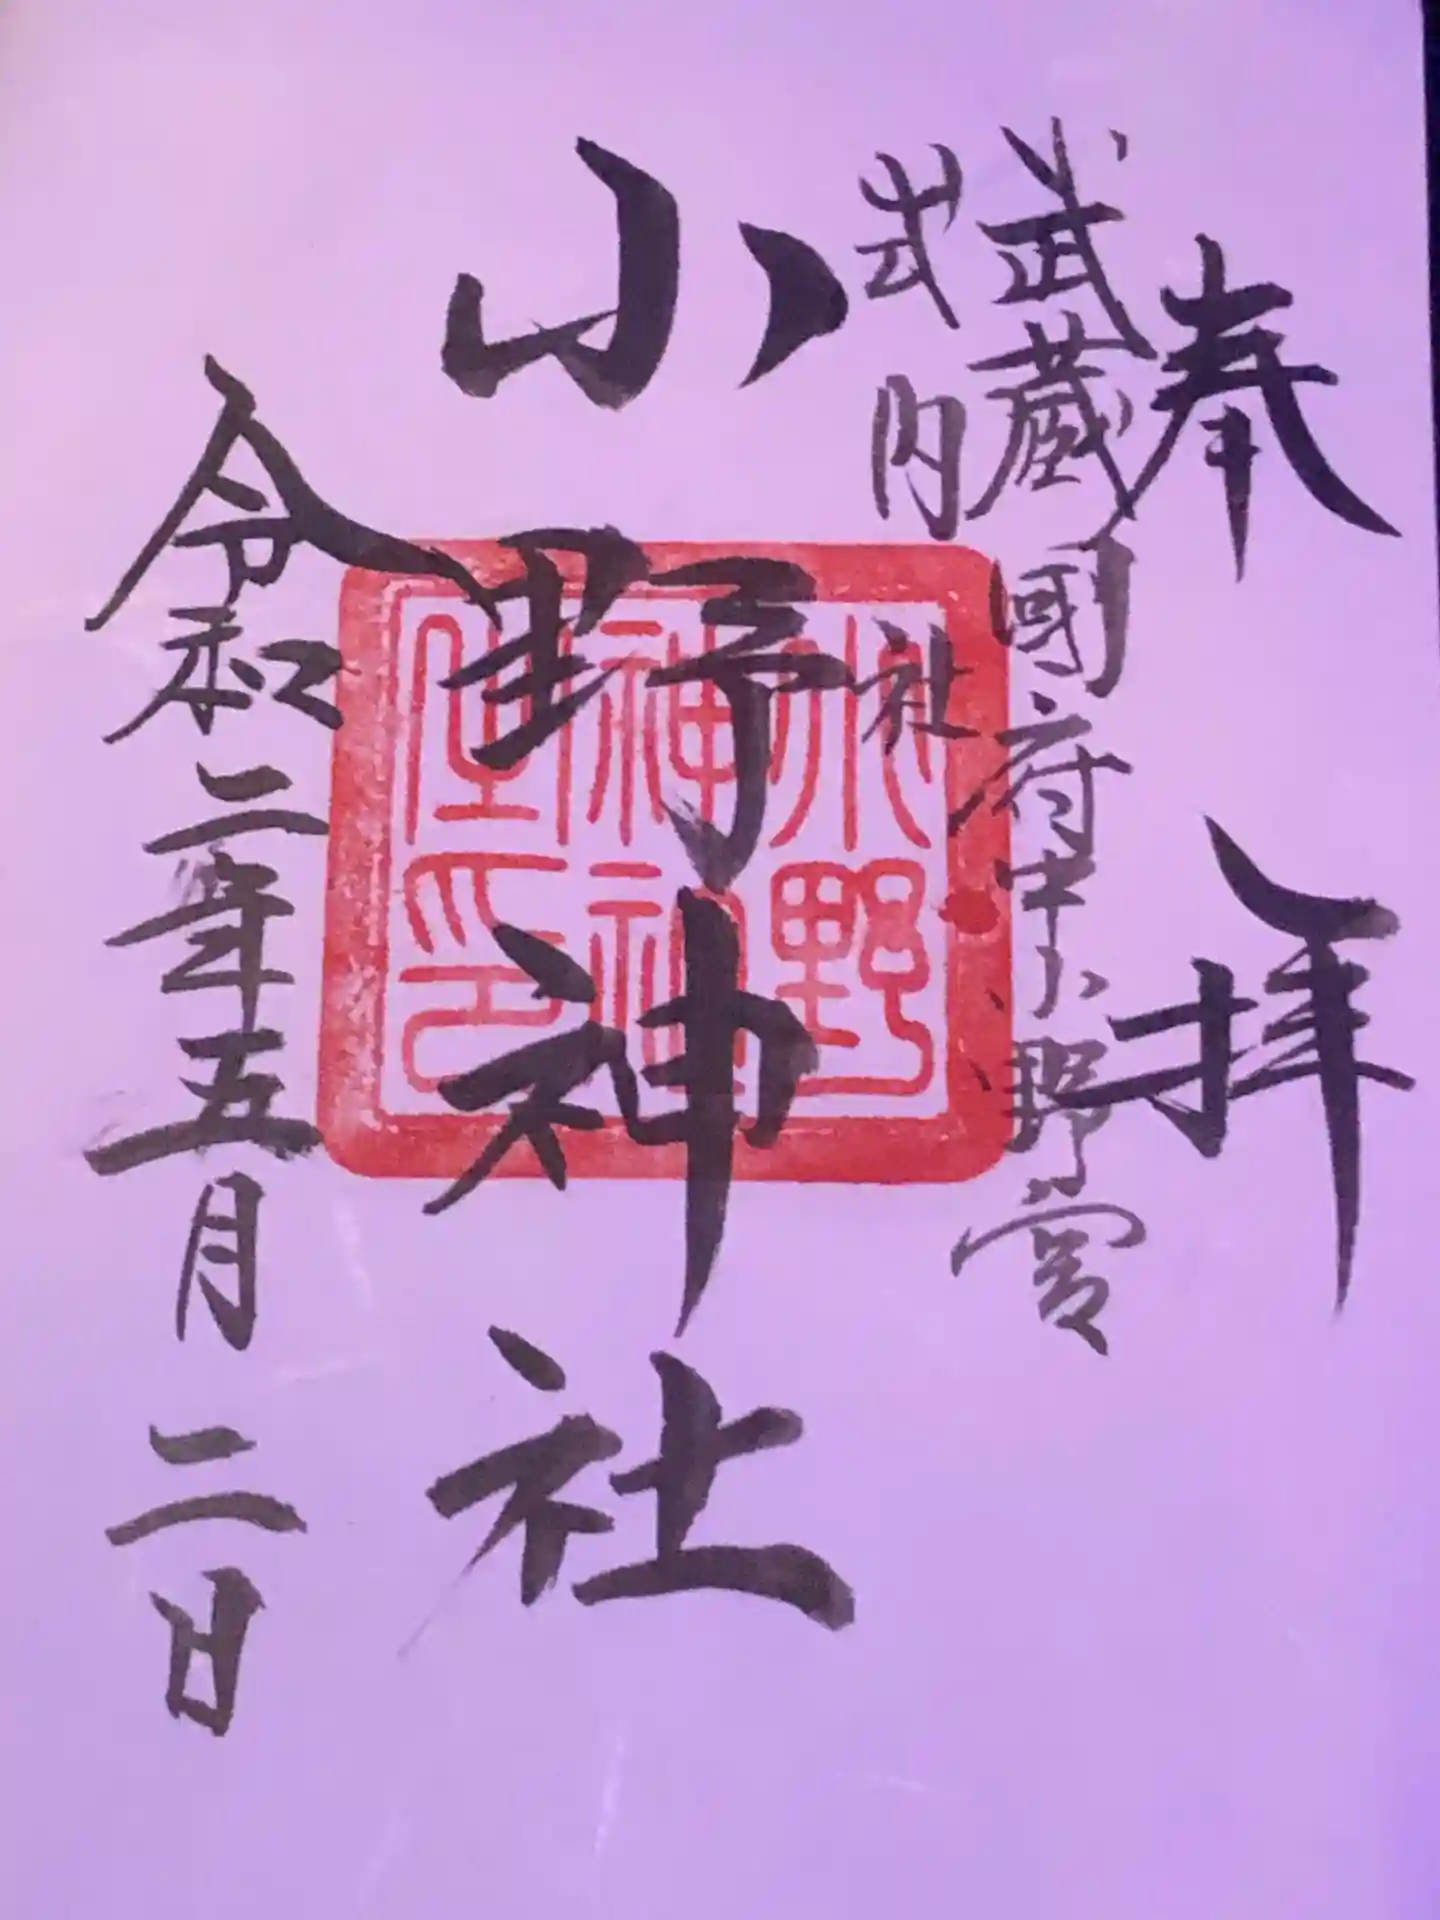 奉拝
武蔵國府中小野宮
式内社
小野神社
小野
神社
之印
令和二年五月二日